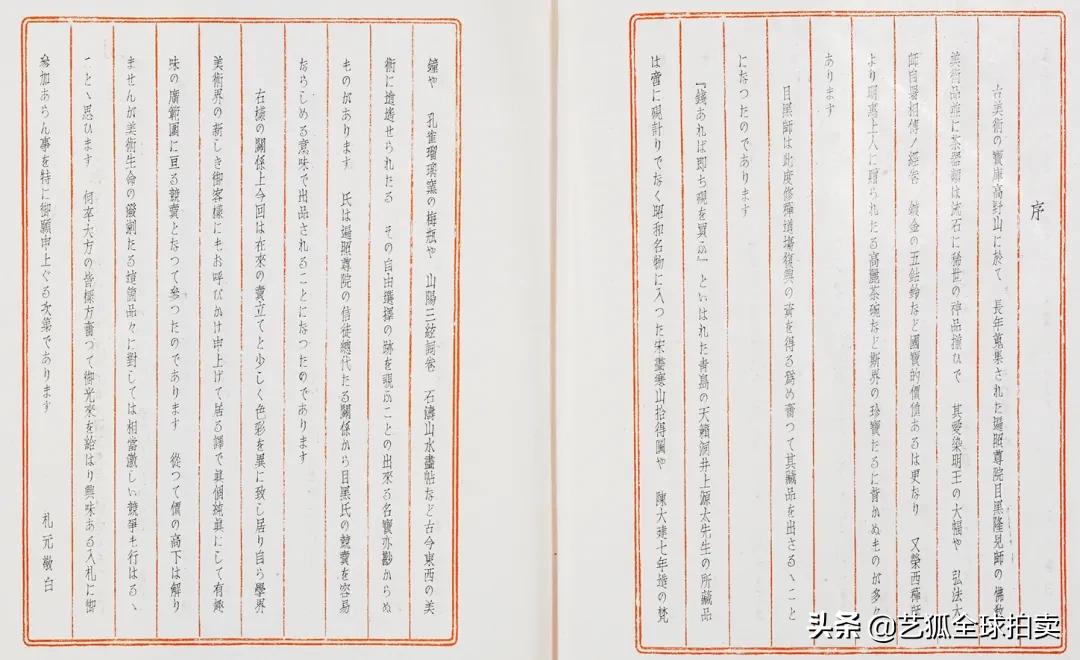 序
古美術の寶庫高野山に於て　長年蒐集された遍照尊院目黒隆見師の佛教
美術品並に茶器類は流石に稀世の神品揃ひで　其愛染明王の大幅や　弘法大
師自署相傳ノ經卷　鍍金の五鈷鈴など國寶的價値あるは更なり　又榮西禪師
より明惠上人に贈られたる高麗茶碗など斯界の珍寶たるに背かぬものが多々
あります
目黒師は此度修禪道場復興の資を得る爲め奮つて其藏品を出さるゝこと
になつたのであります
『錢あれば即ち硯を買ふ』といはれた青島の天籟洞井上源太先生の所藏品
は啻に硯計りでなく昭和名物に入つた宋畫寒山拾得圖や　陳大建七年造の梵
鐘や　孔雀瑠璃窯の梅瓶や　山陽三絃詞卷　石濤山水畫帖など古今東西の美
術に逍遙せられたる　その自由選擇の跡を覗ふことの出來る名寶亦尠からぬ
ものがあります　氏は遍照尊院の信徒總代たる關係から目黒氏の競賣を容易
ならしめる意味で出品されることになつたのであります
右樣の關係上今回は在來の賣立てと少しく色彩を異に致し居り自ら學界
美術界の新しき御客樣にもお呼びかけ申上げて居る譯で眞個純眞にして有趣
味の廣範圍に亘る競賣となつて參つたのであります　從つて價の高下は解り
ませんが美術生命の潑溂たる這箇品々に對しては相當激しい競爭も行はるゝ
ことゝ思ひます　何卒大方の皆樣方奮つて御光來を給はり興味ある入札に御
參加あらん事を特に御願申上ぐる次第であります
札元敬白
头条 @艺狐全球拍卖